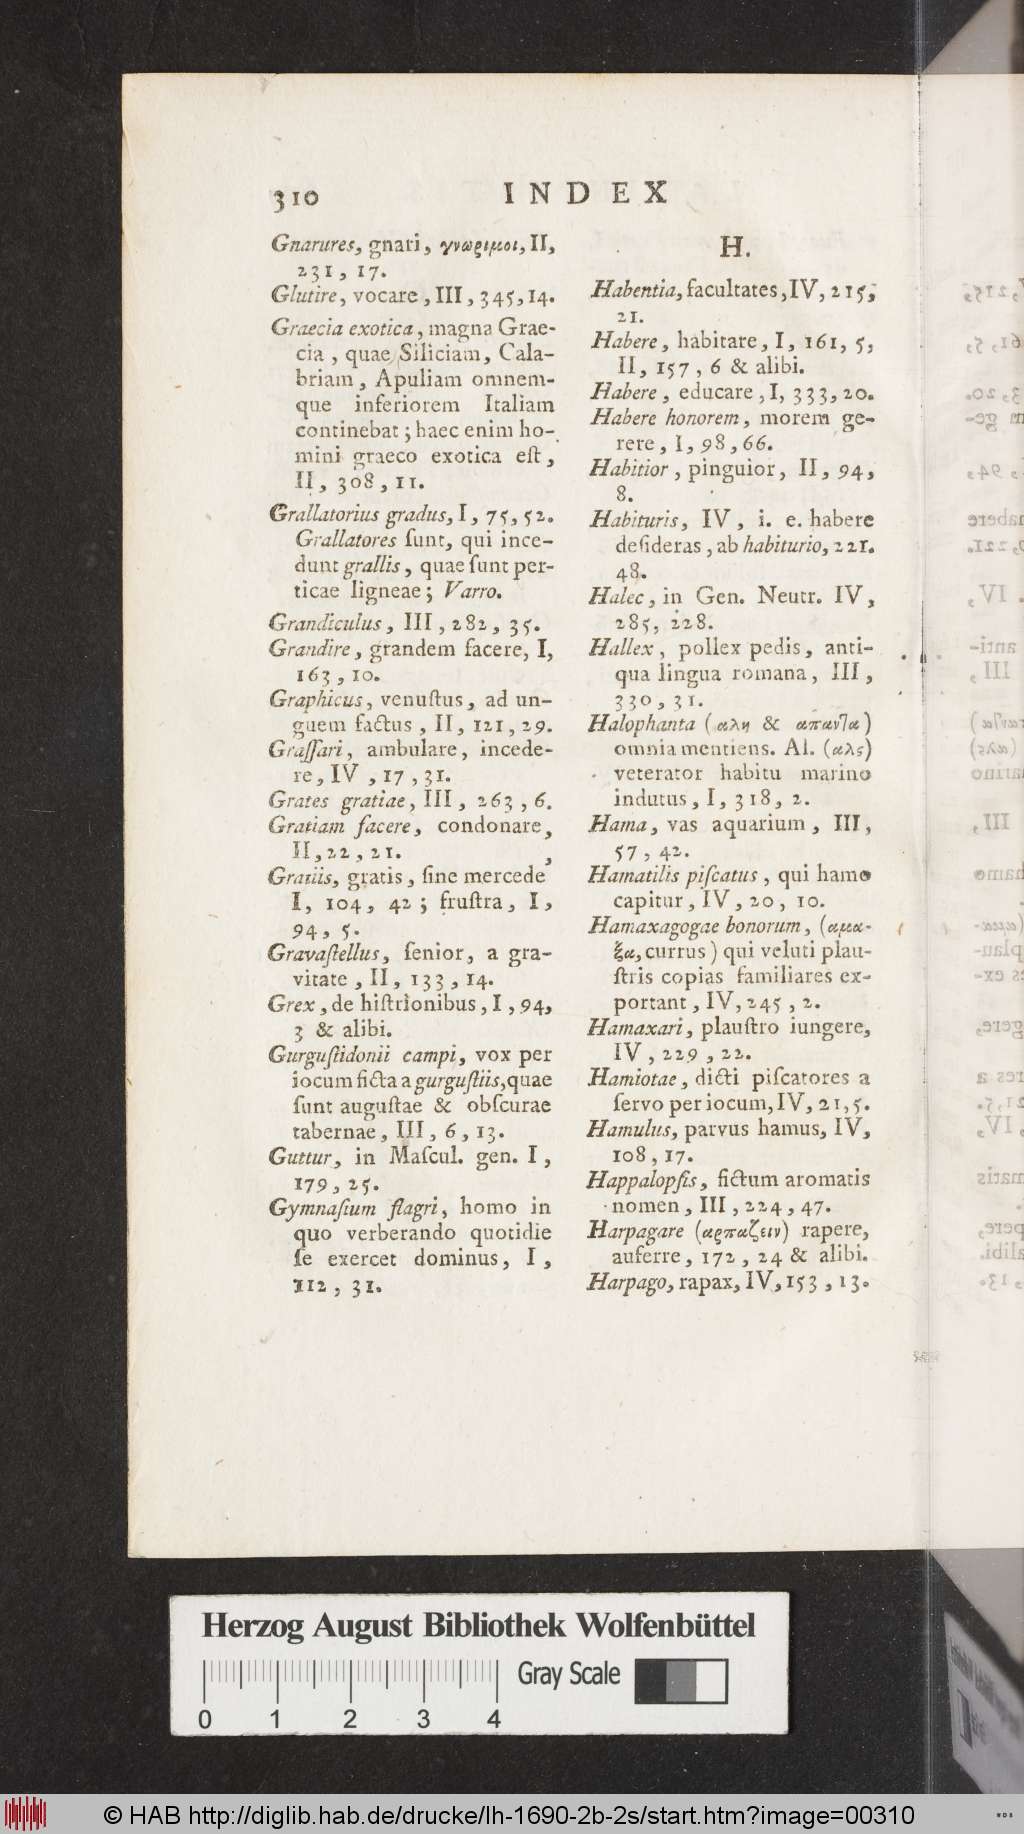 310 INDEX
Gnarures, gnari, γνωριμοι, II,
231, 17.
Glutire, vocare, III, 345, 14.
Graecia exotica, magna Grae-
cia, quae Siliciam, Cala-
briam, Apuliam omnem-
que inferiorem Italiam
continebat; haec enim ho-
mini graeco exotica eſt,
II, 308, 11.
Grallatorius gradus, I, 75, 52.
Grallatores ſunt, qui ince-
dunt grallis, quae ſunt per-
ticae ligneae; Varro.
Grandiculus, III, 282, 35.
Grandire, grandem facere, I,
163, 10.
Graphicus, venuſtus, ad un-
guem factus, II, 121, 29.
Graſſari, ambulare, incede-
re, IV, 17, 31.
Grates gratiae, III, 263, 6.
Gratiam facere, condonare,
II, 22, 21.
Gratiis, gratis, ſine mercede,
I, 104, 42; fruſtra, I,
94, 5.
Gravaſtellus, ſenior, a gra-
vitate, II, 133, 14.
Grex, de hiſtrionibus, I, 94,
3 & alibi.
Gurguſtidonii campi, vox per
iocum ficta a gurguſtiis, quae
ſunt auguſtae & obſcurae
tabernae, III, 6, 13.
Guttur, in Maſcul. gen. I,
179, 25.
Gymnaſium flagri, homo in
quo verberando quotidie
ſe exercet dominus, I,
112, 31.
H.
Habentia, facultates, IV, 215,
21.
Habere, habitare, I, 161, 5,
II, 157, 6 & alibi.
Habere, educare, I, 333, 20.
Habere honorem, morem ge-
rere, I, 98, 66.
Habitior, pinguior, II, 94,
8.
Habituris, IV, i. e. habere
deſideras, ab habiturio, 221.
48.
Halec, in Gen. Neutr. IV,
285, 228.
Hallex, pollex pedis, anti-
qua lingua romana, III,
330, 31.
Halophanta (αλη & απανῖα)
omnia mentiens. Al. (αλς)
veterator habitu marino
indutus, I, 318, 2.
Hama, vas aquarium, III,
57, 42.
Hamatilis piſcatus, qui hamo
capitur, IV, 20, 10.
Hamaxagogae bonorum, (αμα-
ξα, currus) qui veluti plau-
ſtris copias familiares ex-
portant, IV, 245, 2.
Hamaxari, plauſtro iungere,
IV, 229, 22.
Hamiotae, dicti piſcatores a
ſervo per iocum, IV, 21, 5.
Hamulus, parvus hamus, IV,
108, 17.
Happalopſis, fictum aromatis
nomen, III, 224, 47.
Harpagare (αρπαζειν) rapere,
auferre, 172, 24 & alibi.
Harpago, rapax, IV, 153, 13.
Herzog August Bibliothek Wolfenbüttel
Gray Scale
0 1 2 3 4
© HAB http://diglib.hab.de/drucke/lh-1690-2b-2s/start.htm?image=00310